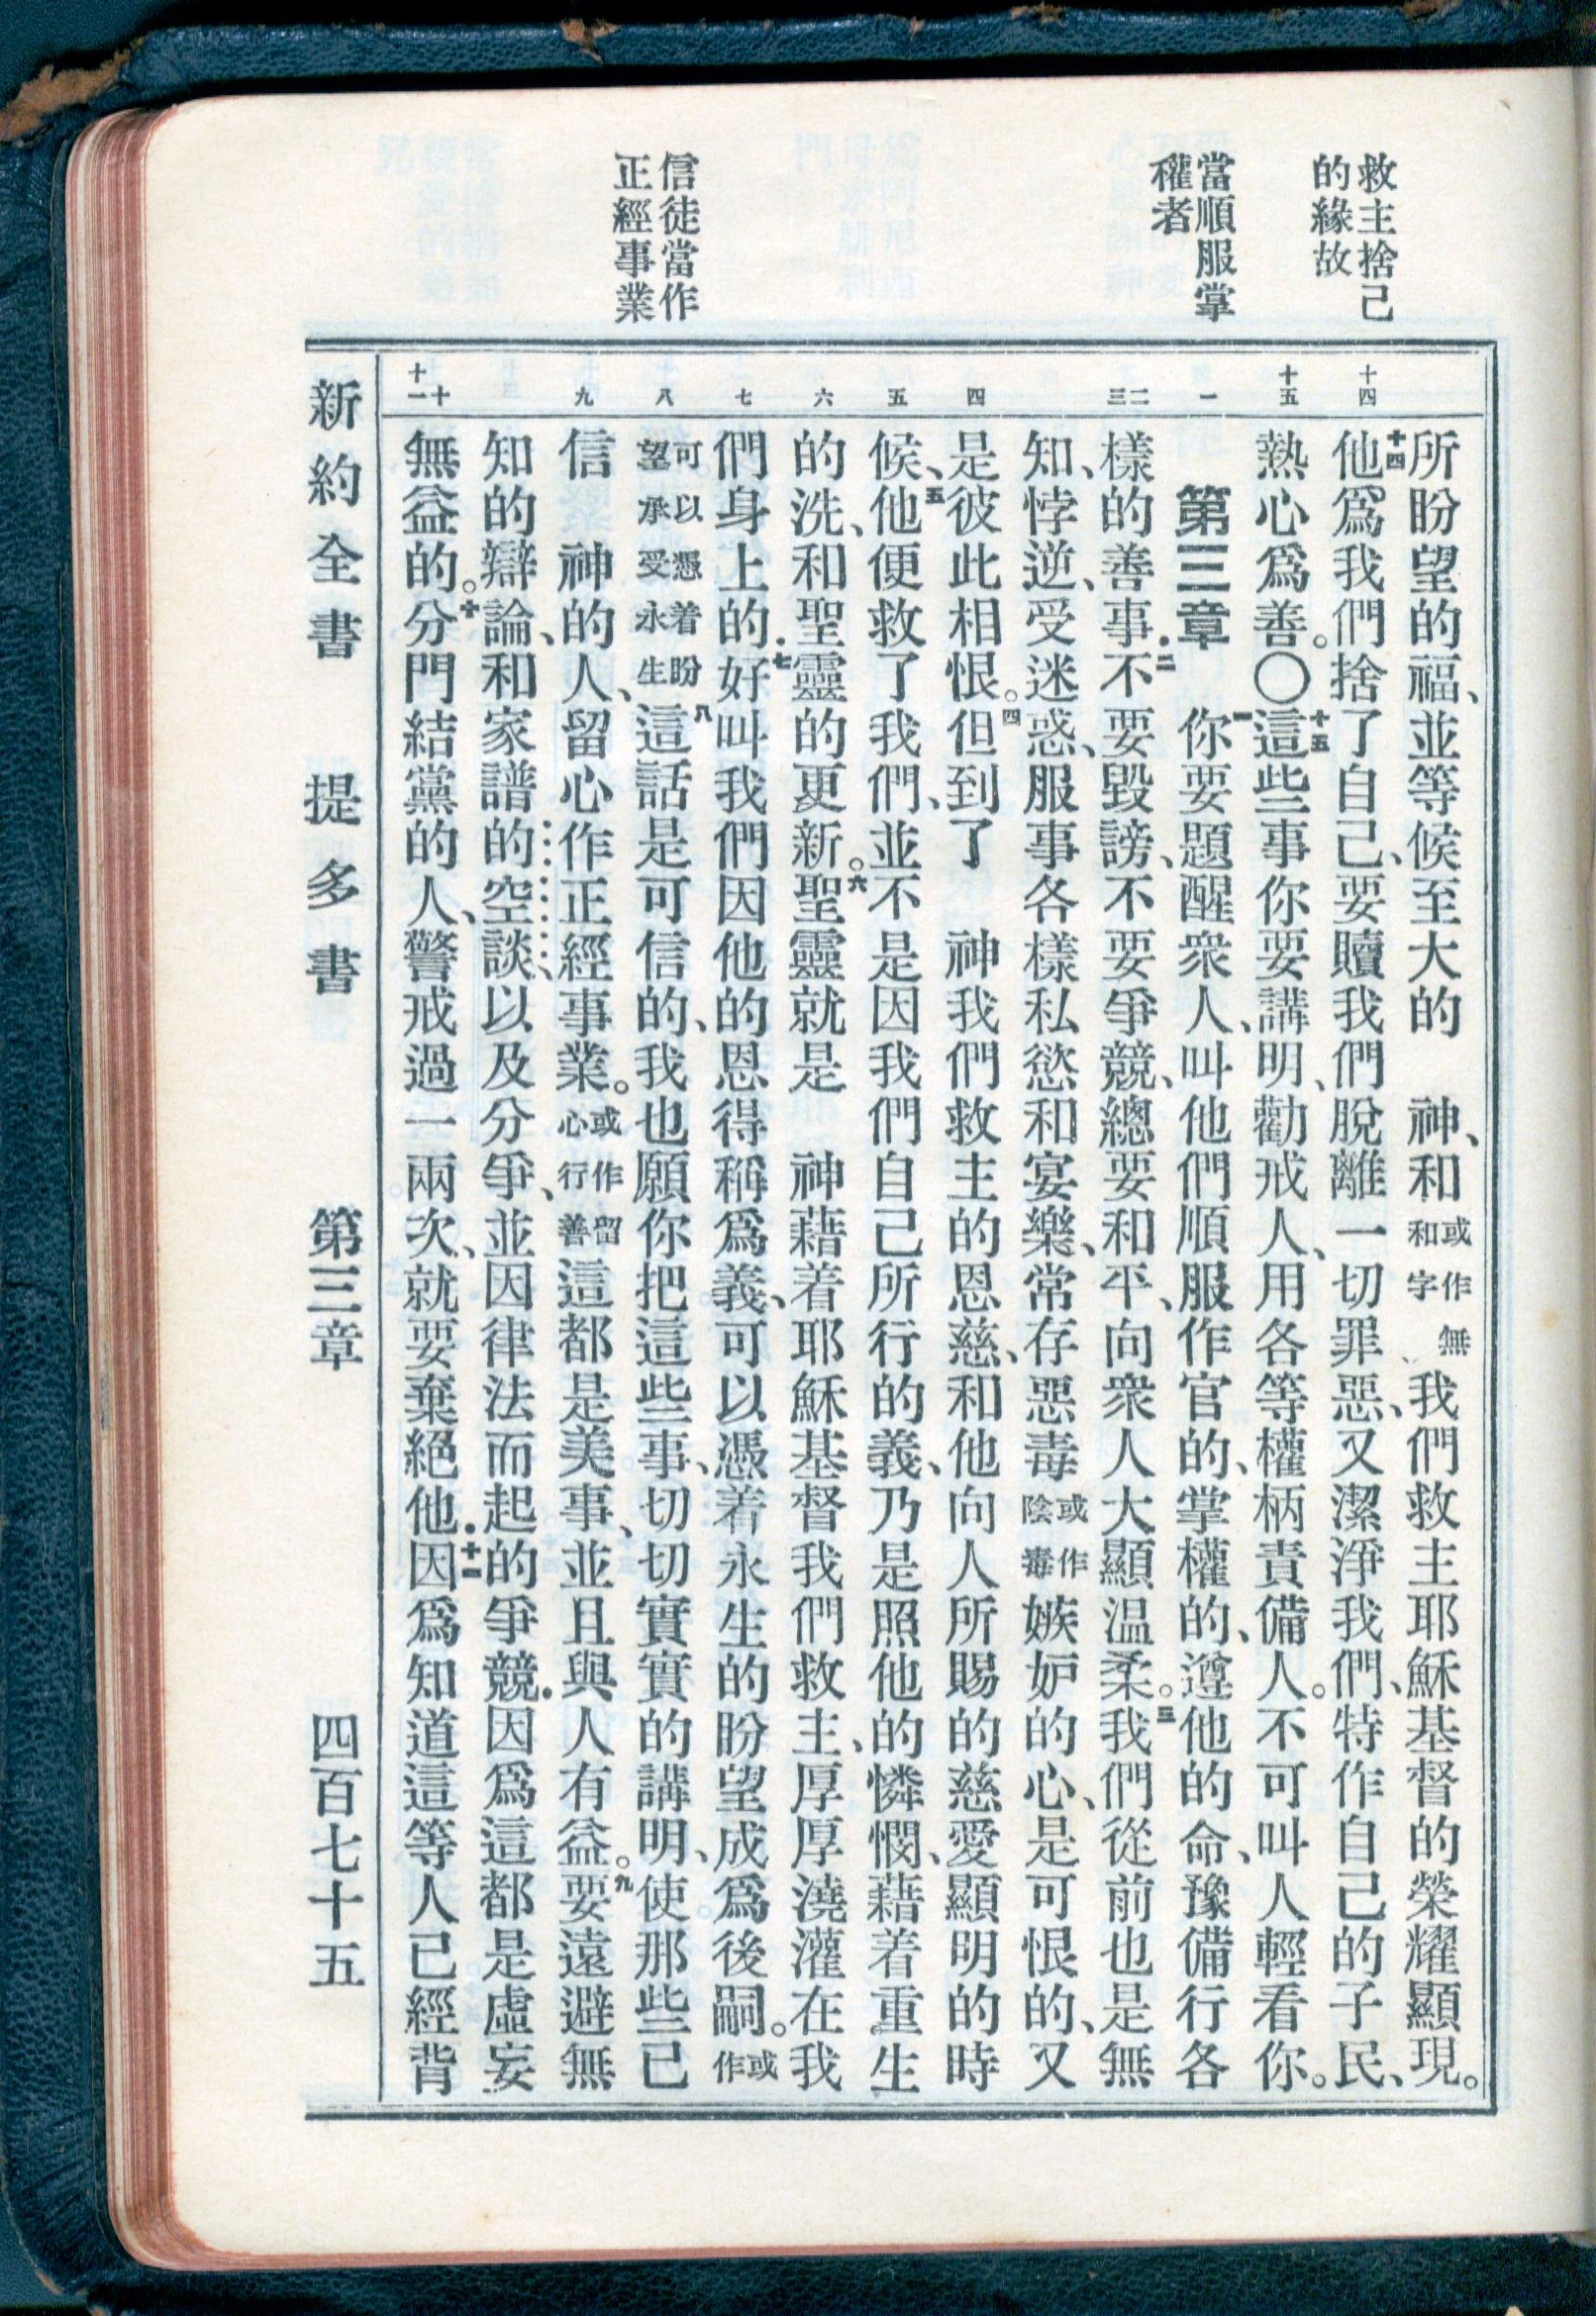 救主捨己
的緣故
當順服掌
權者
信徒當作
正經事業
十四
十五
一
二三
四
五
六
七
八
九
十
十一
所盼望的福、並等候至大的　神、和或作無和字我們救主耶穌基督的榮耀顯現。
十四他爲我們捨了自己、要贖我們脫離一切罪惡、又潔淨我們、特作自己的子民、
熱心爲善。〇十五這些事你要講明、勸戒人、用各等權柄責備人。不可叫人輕看你。
第三章　一你要題醒衆人、叫他們順服作官的、掌權的、遵他的命、豫備行各
樣的善事．二不要毀謗、不要爭競、總要和平、向衆人大顯温柔。三我們從前也是無
知、悖逆、受迷惑、服事各樣私慾和宴樂、常存惡毒或作陰毒嫉妒的心、是可恨的、又
是彼此相恨。四但到了　神我們救主的恩慈、和他向人所賜的慈愛顯明的時
候、五他便救了我們、並不是因我們自己所行的義、乃是照他的憐憫、藉着重生
的洗、和聖靈的更新。六聖靈就是　神藉着耶穌基督我們救主、厚厚澆灌在我
們身上的．七好叫我們因他的恩得稱爲義、可以憑着永生的盼望成爲後嗣。或作
可以憑着盼望承受永生八這話是可信的、我也願你把這些事、切切實實的講明、使那些已
信　神的人、留心作正經事業。或作留心行善這都是美事、並且與人有益。九要遠避無
知的辯論、和家譜的空談、以及分爭、並因律法而起的爭競．因爲這都是虛妄
無益的。十分門結黨的人、警戒過一兩次、就要棄絕他．十一因爲知道這等人已經背
新約全書　提多書　第三章　四百七十五